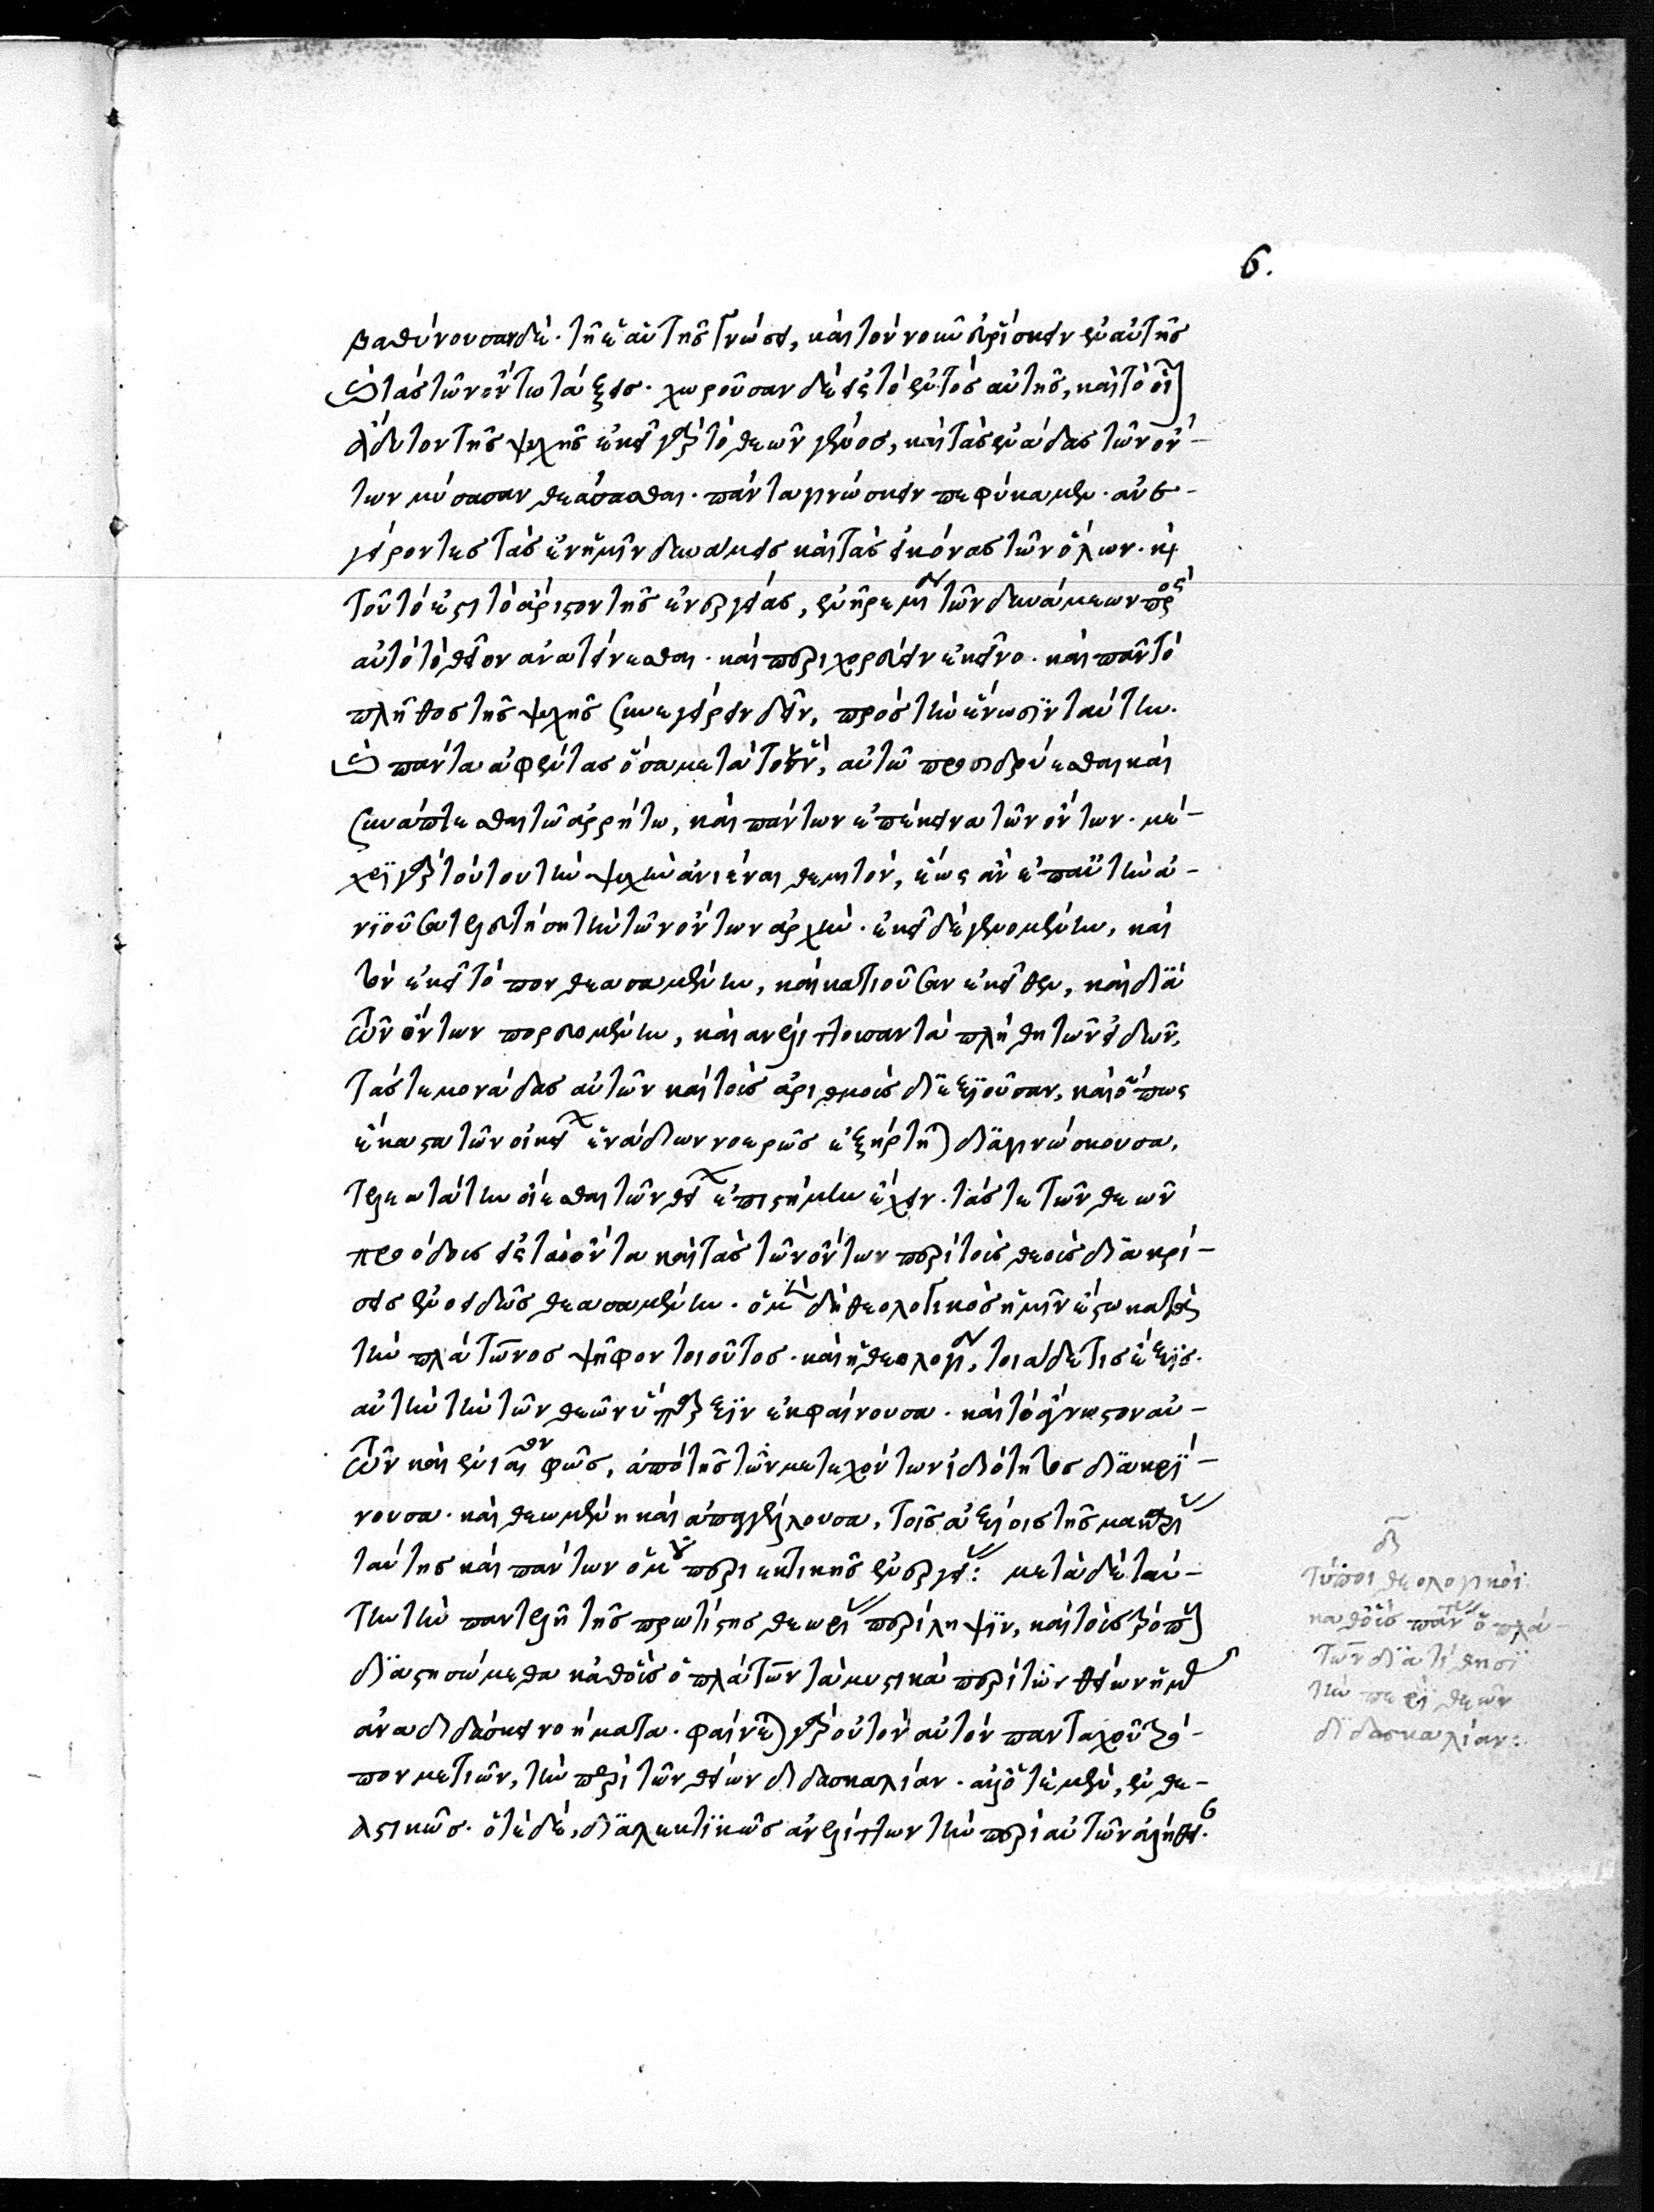 6.
βαθύνουσαν δὲ τῇ ἑαυτῆς γνώσει, καὶ τὸν νοῦν εὑρίσκειν ἐν αὐτῆς
καὶ τὰς τῶν ὄντων τάξεις· χωροῦσαν δὲ εἰς τὸ ἐντὸς αὐτῆς, καὶ τὸ οἷον
ἄδυτον τῆς ψυχῆς ἐκεῖ γὰρ τὸ θεῶν γένος, καὶ τὰς ἑνάδας τῶν ὄν-
των μύσασαν θεάσασθαι· πάντα γινώσκειν πεφύκαμεν· ἀνε-
γείροντες τὰς ἐν ἡμῖν δυνάμεις καὶ τὰς εἰκόνας τῶν ὅλων· καὶ
τοῦτό ἐστι τὸ ἄριστον τῆς ἐνεργείας, ἐν ἠρεμίᾳ τῶν δυνάμεων πρὸς
αὐτὸ τὸ θεῖον ἀνατείνεσθαι· καὶ περιχορεύειν ἐκεῖνο· καὶ πᾶν τὸ
πλῆθος τῆς ψυχῆς συνεγείρειν δεῖν, πρὸς τὴν ἕνωσιν ταύτην·
καὶ πάντα ἀφέντας ὅσα μετὰ τὸ ἕν, αὐτῷ προσιδρύεσθαι καὶ
συνάπτεσθαι τῷ ἀρρήτῳ, καὶ πάντων ἐπέκεινα τῶν ὄντων· μέ-
χρι γὰρ τούτου τὴν ψυχὴν ἀνιέναι θεμιτόν, ἕως ἂν ἐπ' αὐτὴν ἀ-
νιοῦσα τελευτήσῃ τὴν τῶν ὄντων ἀρχήν· ἐκεῖ δὲ γενομένην, καὶ
τὸν ἐκεῖ τόπον θεασαμένην, καὶ κατιοῦσαν ἐκεῖθεν, καὶ διὰ
τῶν ὄντων πορευομένην, καὶ ἀνελίττουσαν τὰ πλήθη τῶν εἰδῶν,
τάς τε μονάδας αὐτῶν καὶ τοὺς ἀριθμοὺς διεξιοῦσαν, καὶ ὅπως
ἕκαστα τῶν οἰκείων ἑνάδων νοερῶς ἐξήρτηται διαγινώσκουσαν,
τελεωτάτην οἴεσθαι τῶν θείων ἐπιστήμην ἔχειν· τάς τε τῶν θεῶν
προόδους εἰς τὰ ὄντα καὶ τὰς τῶν ὄντων περὶ τοὺς θεοὺς διακρί-
σεις ἑνοειδῶς θεασαμένην· ὁ μὲν δὴ θεολογικὸς ἡμῖν ἔστω κατὰ
τὴν πλάτωνος ψῆφον τοιοῦτος· καὶ ἡ θεολογία, τοιάδε τις ἕξις·
αὐτὴν τὴν τῶν θεῶν ὕπαρξιν ἐκφαίνουσα· καὶ τὸ ἄγνωστον αὐ-
τῶν καὶ ἑνιαῖον φῶς, ἀπὸ τῆς τῶν μετεχόντων ἰδιότητος διακρί-
νουσα· καὶ θεωμένη καὶ ἀπαγγέλλουσα, τοῖς ἀξίοις τῆς μακαρίας
ταύτης καὶ πάντων ὁμοῦ περιεκτικῆς ἐνεργείας: μετὰ δὲ ταύ-
την τὴν παντελῆ τῆς πρωτίστης θεωρίας περίληψιν, καὶ τοὺς τρόπους
διαστησώμεθα καθ' οὓς ὁ πλάτων τὰ μυστικὰ περὶ τῶν θείων ἡμᾶς
ἀναδιδάσκει νοήματα· φαίνεται γὰρ οὐ τὸν αὐτὸν πανταχοῦ τρό-
πον μετιών, τὴν περὶ τῶν θείων διδασκαλίαν· ἀλλ' ὁτὲ μέν, ἐνθε-
αστικῶς· ὁτὲ δέ, διαλεκτικῶς ἀνελίττων τὴν περὶ αὐτῶν ἀλήθειαν·
δ
τύποι θεολογικοί·
καθ' οὓς πάντας ὁ πλά-
των διατίθησι
τὴν περὶ θεῶν
διδασκαλίαν: